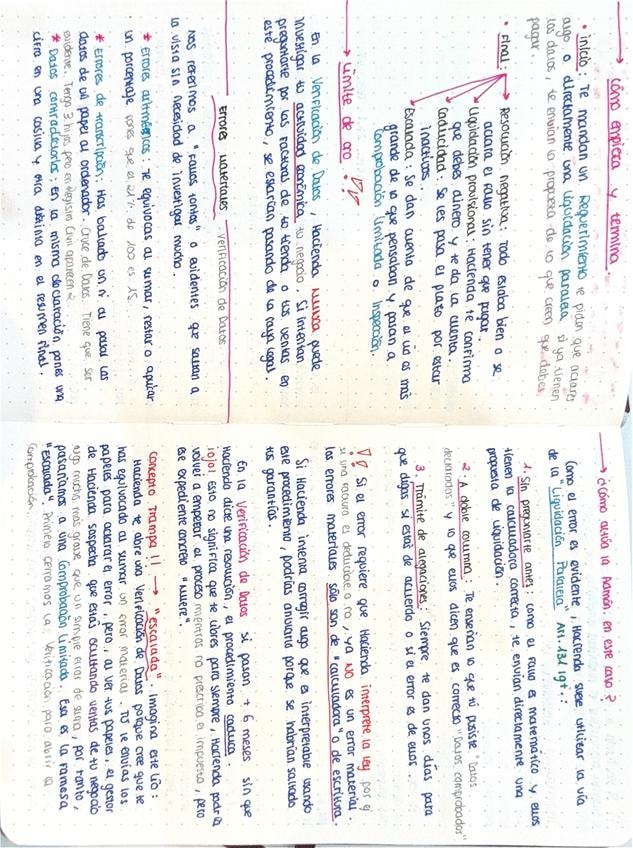 → cómo empieza y termina.
• inicio: Te mandan un Requerimiento te piden que aclares
algo o directamente una liquidación paralela, si ya tienen
los datos, te envían la propuesta de lo que creen que debes
pagar.
• Final: → Resolución negativa: Todo estaba bien o se
aclara el fallo sin tener que pagar.
→ Liquidación provisional: Hacienda te confirma
que debes dinero y te da la cuenta.
→ Caducidad: Se les pasa el plazo por estar
inactivos.
→ Escalada: Se dan cuenta de que el lío es más
grande de lo que pensaban y pasan a
Comprobación Limitada o Inspección.
→ Límite de oro!!
En la Verificación de Datos, Hacienda NUNCA puede
investigar tu actividad económica, tu negocio. Si intentan
preguntarte por las facturas de tu tienda o tus ventas en
este procedimiento, se estarían pasando de la raya legal.
Errores materiales Verificación de Datos
Nos referimos a "fallos tontos" o evidentes que saltan a
la vista sin necesidad de investigar mucho.
* Errores aritméticos: te equivocas al sumar, restar o aplicar
un porcentaje pones que el 21% de 100 es 15.
* Errores de transcripción: Has bailado un nº al pasar los
datos de un papel al ordenador. Cruce de Datos. Tiene que ser
evidente. Tengo 3 hijos, pero en Registro Civil aparecen 2.
* Datos contradictorios: en la misma declaración pones una
cifra en una casilla y otra distinta en el resumen final.
→ ¿Cómo actúa la Admón. en este caso?
Como el error es evidente, Hacienda suele utilizar la vía
de la "Liquidación Paralela" Art. 131 lgt.:
1. Sin preguntarte antes: como el fallo es matemático y ellos
tienen la calculadora correcta, te envían directamente una
propuesta de liquidación.
2. A doble columna: Te enseñan lo que tú pusiste "Datos
declarados" y lo que ellos dicen que es correcto "Datos comprobados"
3. Trámite de alegaciones: Siempre te dan unos días para
que digas si estás de acuerdo o si el error es de ellos.
!! Si el error requiere que Hacienda interprete la ley por ej
si una factura es deducible o no, ya NO es un error material.
Los errores materiales sólo son de "calculadora" o de escritura.
Si Hacienda intenta corregir algo que es interpretable usando
este procedimiento, podrías anularlo porque se habrían saltado
tus garantías.
En la Verificación de Datos si pasan + 6 meses sin que
Hacienda dicte una resolución, el procedimiento caduca.
¡ojo! Esto no significa que te libres para siempre, Hacienda podría
volver a empezar el proceso mientras no prescriba el impuesto, pero
ese expediente concreto "muere".
Concepto Trampa!! → "escalada". Imagina este lío:
Hacienda te abre una Verificación de Datos porque cree que te
has equivocado al sumar un error material. Tú le envías los
papeles para aclarar el error, pero, al ver tus papeles, el gestor
de Hacienda sospecha que estás ocultando ventas de tu negocio
algo mucho más grave que un simple error de suma, por tanto,
pasaríamos a una Comprobación Limitada. Esa es la famosa
"escalada". Primero cerramos la Verificación para abrir la
Comprobación.